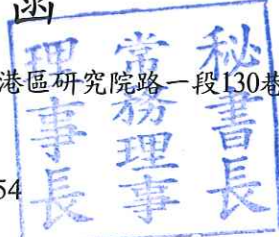 函
港區研究院路一段130巷
54
秘書長
常務理事
理事長